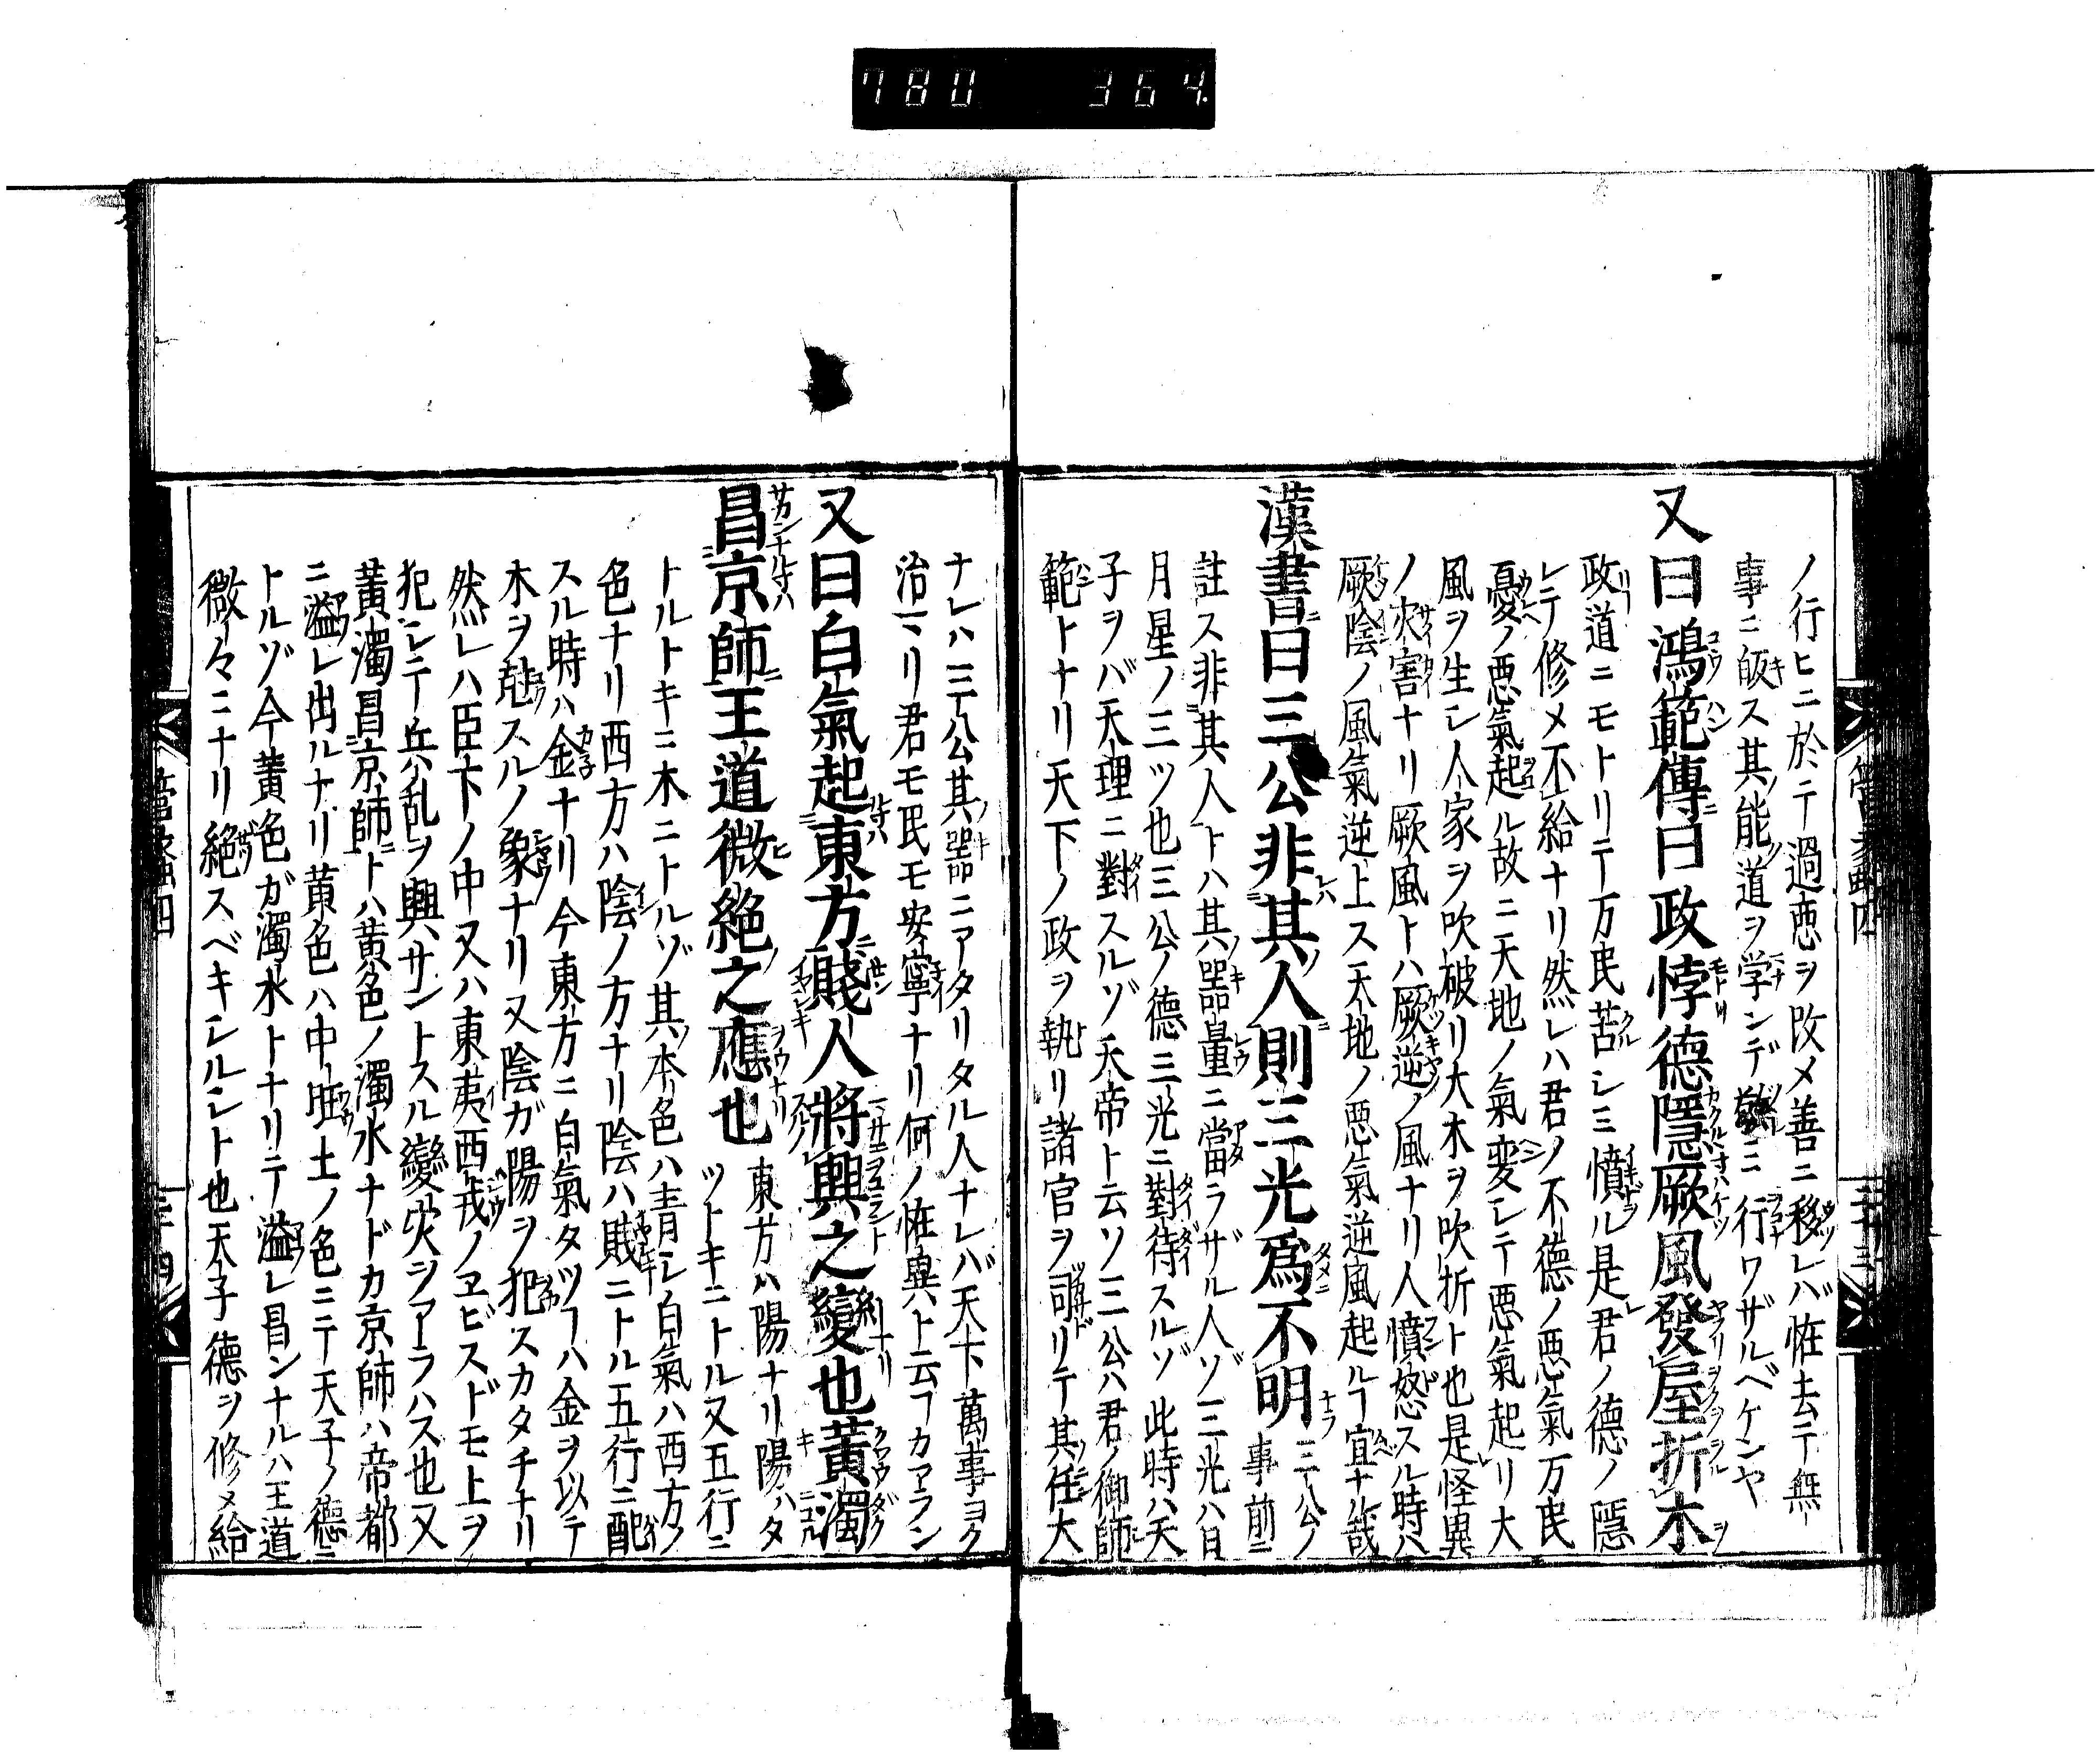 780 364
ノ行ヒニ於テ過惡ヲ改メ善ニ移レバ恠去テ無
事ニ皈ス其能道ヲ学ンデ敬ニ行ワザルベケンヤ
又曰鴻範傳曰政悖德隱厥風發屋折木
政道ニモトリテ万民苦シミ憤ル是君ノ德ノ隱
レテ修メ不給ナリ然レハ君ノ不德ノ悪氣万民
憂ノ悪氣起ル故ニ天地ノ氣変レテ悪氣起リ大
風ヲ生シ人家ヲ吹破リ大木ヲ吹折ト也是怪異
ノ灾害ナリ厥風トハ厥逆ノ風ナリ人憤怒スル時ハ
厥陰ノ風氣逆上ス天地ノ悪氣逆風起ルヿ宜ナル哉
漢書曰三公非其人則三光爲不明 三公ノ事前ニ
註ス非其人トハ其噐量ニ當ラザル人ゾ三光ハ日
月星ノ三ツ也三公ノ德三光ニ對待スルゾ此時ハ天
子ヲバ天理ニ對スルゾ天帝ト云ソ三公ハ君ノ御師
範トナリ天下ノ政ヲ執リ諸官ヲ司リテ其任大
ナレハ三公其噐ニアタリタル人ナレバ天下萬事ヨク
治マリ君モ民モ安寧ナリ何ノ恠異ト云フカアラン
又曰白氣起東方賤人將興之變也黄濁
昌京師王道微絶之應也 東方ハ陽ナリ陽ハタツトキニトル又五行ニ
トルトキニ木ニトルゾ其本色ハ青シ白氣ハ西方ノ
色ナリ西方ハ陰ノ方ナリ陰ハ賎ニトル五行ニ配
スル時ハ金ナリ今東方ニ白氣タツヿハ金ヲ以テ
木ヲ尅スルノ象ナリ又陰ガ陽ヲ犯スカタチナリ
然レハ臣下ノ中又ハ東夷西戎ノヱビスドモ上ヲ
犯シテ兵乱ヲ興サントスル變灾ヲアラハス也又
黄濁昌京師トハ黄色ノ濁水ナドカ京師ハ帝都
ニ溢レ出ルナリ黄色ハ中旺土ノ色ニテ天子ノ德ニ
トルゾ今黄色ガ濁水トナリテ溢レ昌ンナルハ王道
微々ニナリ絶スベキシルシト也天子德ヲ修メ給